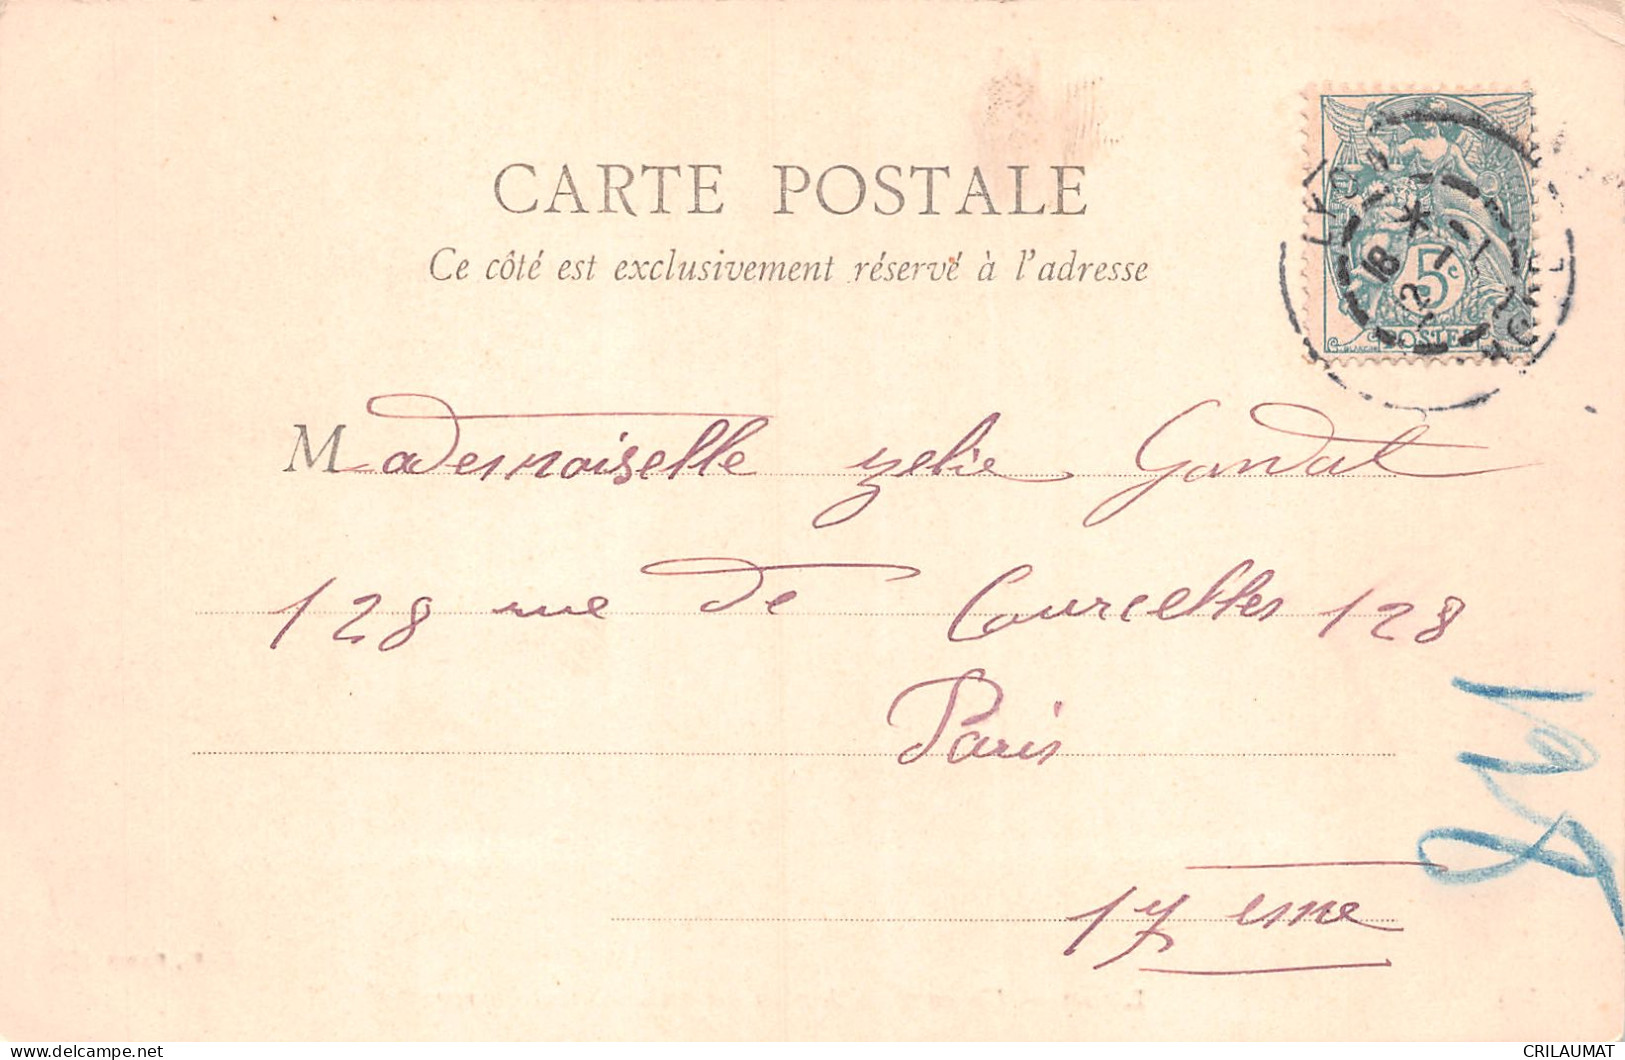 CARTE POSTALE
Ce côté est exclusivement réservé à l'adresse
5c
POSTES
Mademoiselle zelie Gandat
128 rue de Courcelles 128
Paris
17 eme
CRILAUMAT